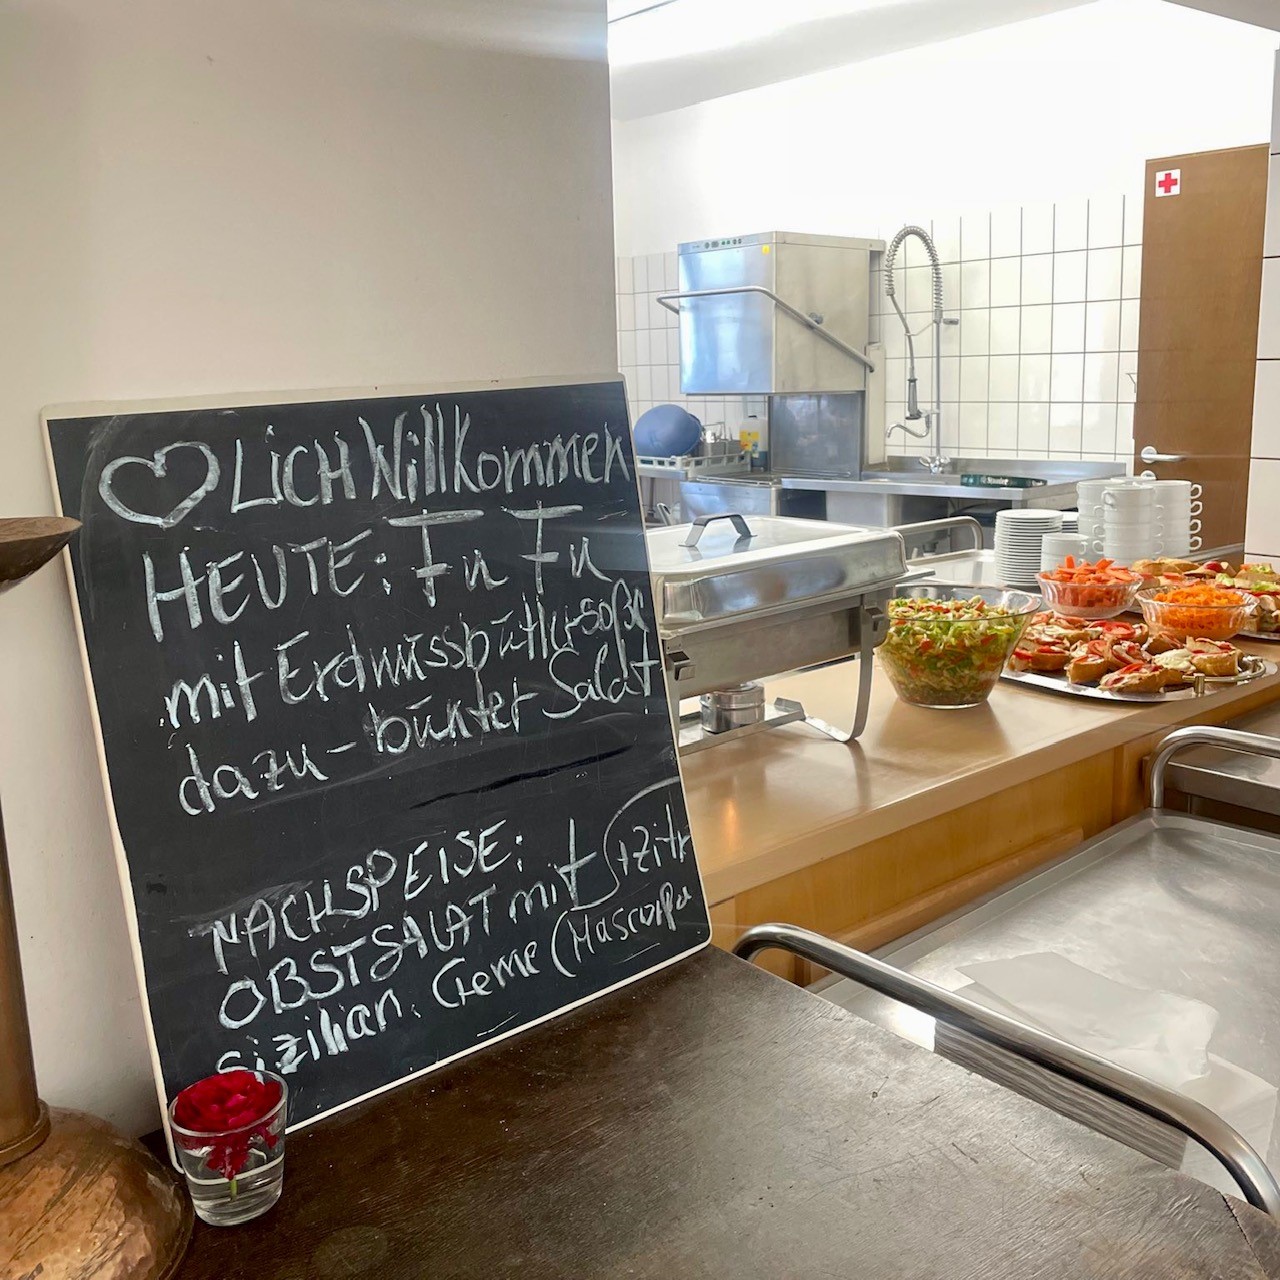 ♡LiCH Willkommen
HEUTE: Fu Fu
mit Erdnussbuttersoße
dazu - bunter Salat
NACHSPEISE:
OBSTSALAT mit
sizilian. Creme (Mascorpa